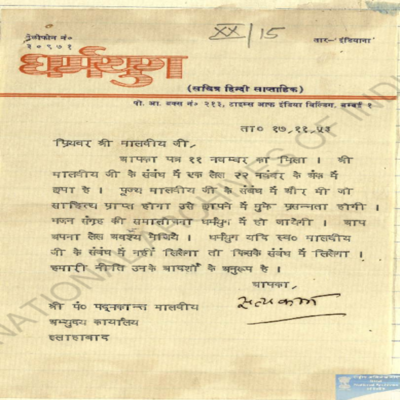 टेलीफोन नं०
३०९७१
XX/15
तार-'इंडियाना'
धर्मयुग
(सचित्र हिन्दी साप्ताहिक)
पो. आ. बक्स नं० २१३, टाइम्स आफ इंडिया बिल्डिंग, बम्बई १
ता० १७.११.५३
प्रियवर श्री मालवीय जी,
आपका पत्र ११ नवम्बर का मिला । श्री
मालवीय जी के संबंध में एक लेख २२ नवंबर के अंक में
छपा है । पूज्य मालवीय जी के संबंध में और भी जो
साहित्य प्राप्त होगा उसे छापने में मुझे प्रसन्नता होगी ।
भजन संग्रह की समालोचना धर्मयुग में हो जायेगी । आप
अपना लेख अवश्य भेजिये । धर्मयुग यदि स्व० मालवीय
जी के संबंध में नहीं लिखेगा तो किसके संबंध में लिखेगा ।
हमारी नीति उनके आदर्शों के अनुरूप है ।
आपका,
सत्यकाम
श्री पं० पद्मकान्त मालवीय
अभ्युदय कार्यालय
इलाहाबाद
NATIONAL ARCHIVES OF INDIA